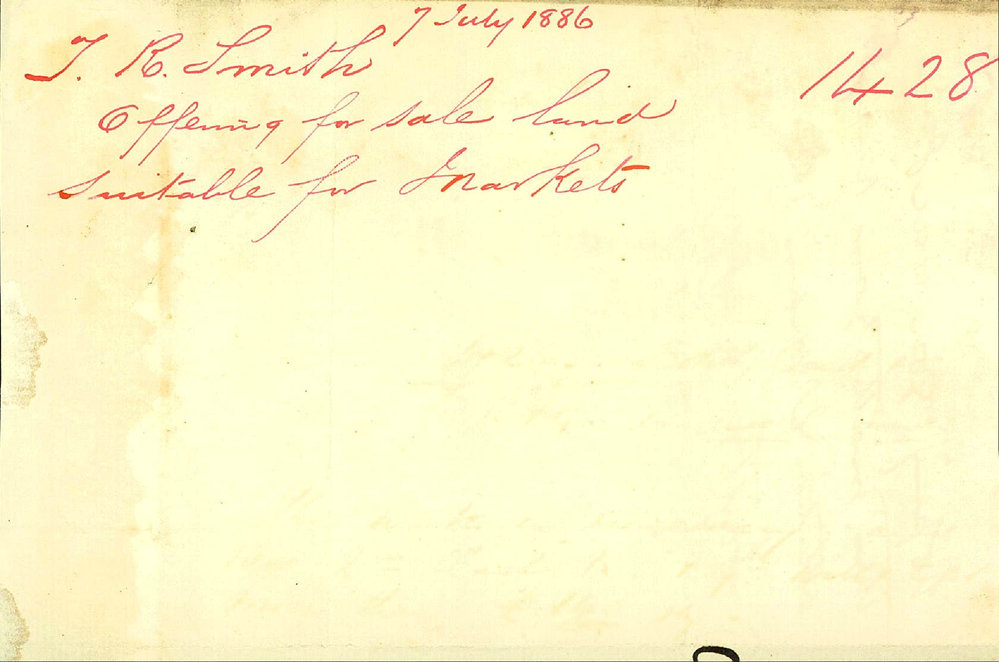 7 July 1886
T. R. Smith
1428
Offering for sale land
suitable for Markets